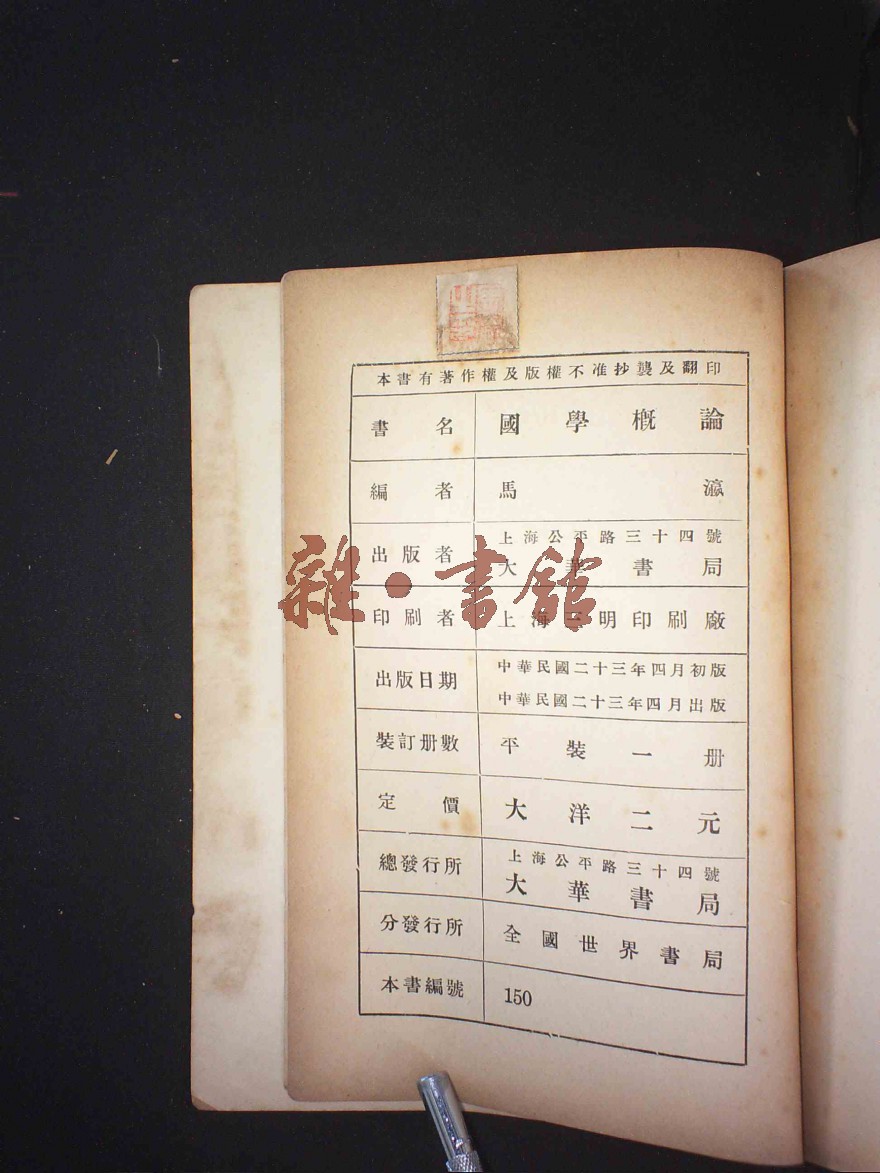 本書有著作權及版權不准抄襲及翻印
書名 國學概論
編者 馬瀛
出版者 上海公平路三十四號
大華書局
印刷者 上海三明印刷廠
出版日期 中華民國二十三年四月初版
中華民國二十三年四月出版
裝訂册數 平裝一册
定價 大洋二元
總發行所 上海公平路三十四號
大華書局
分發行所 全國世界書局
本書編號 150
雜·書館